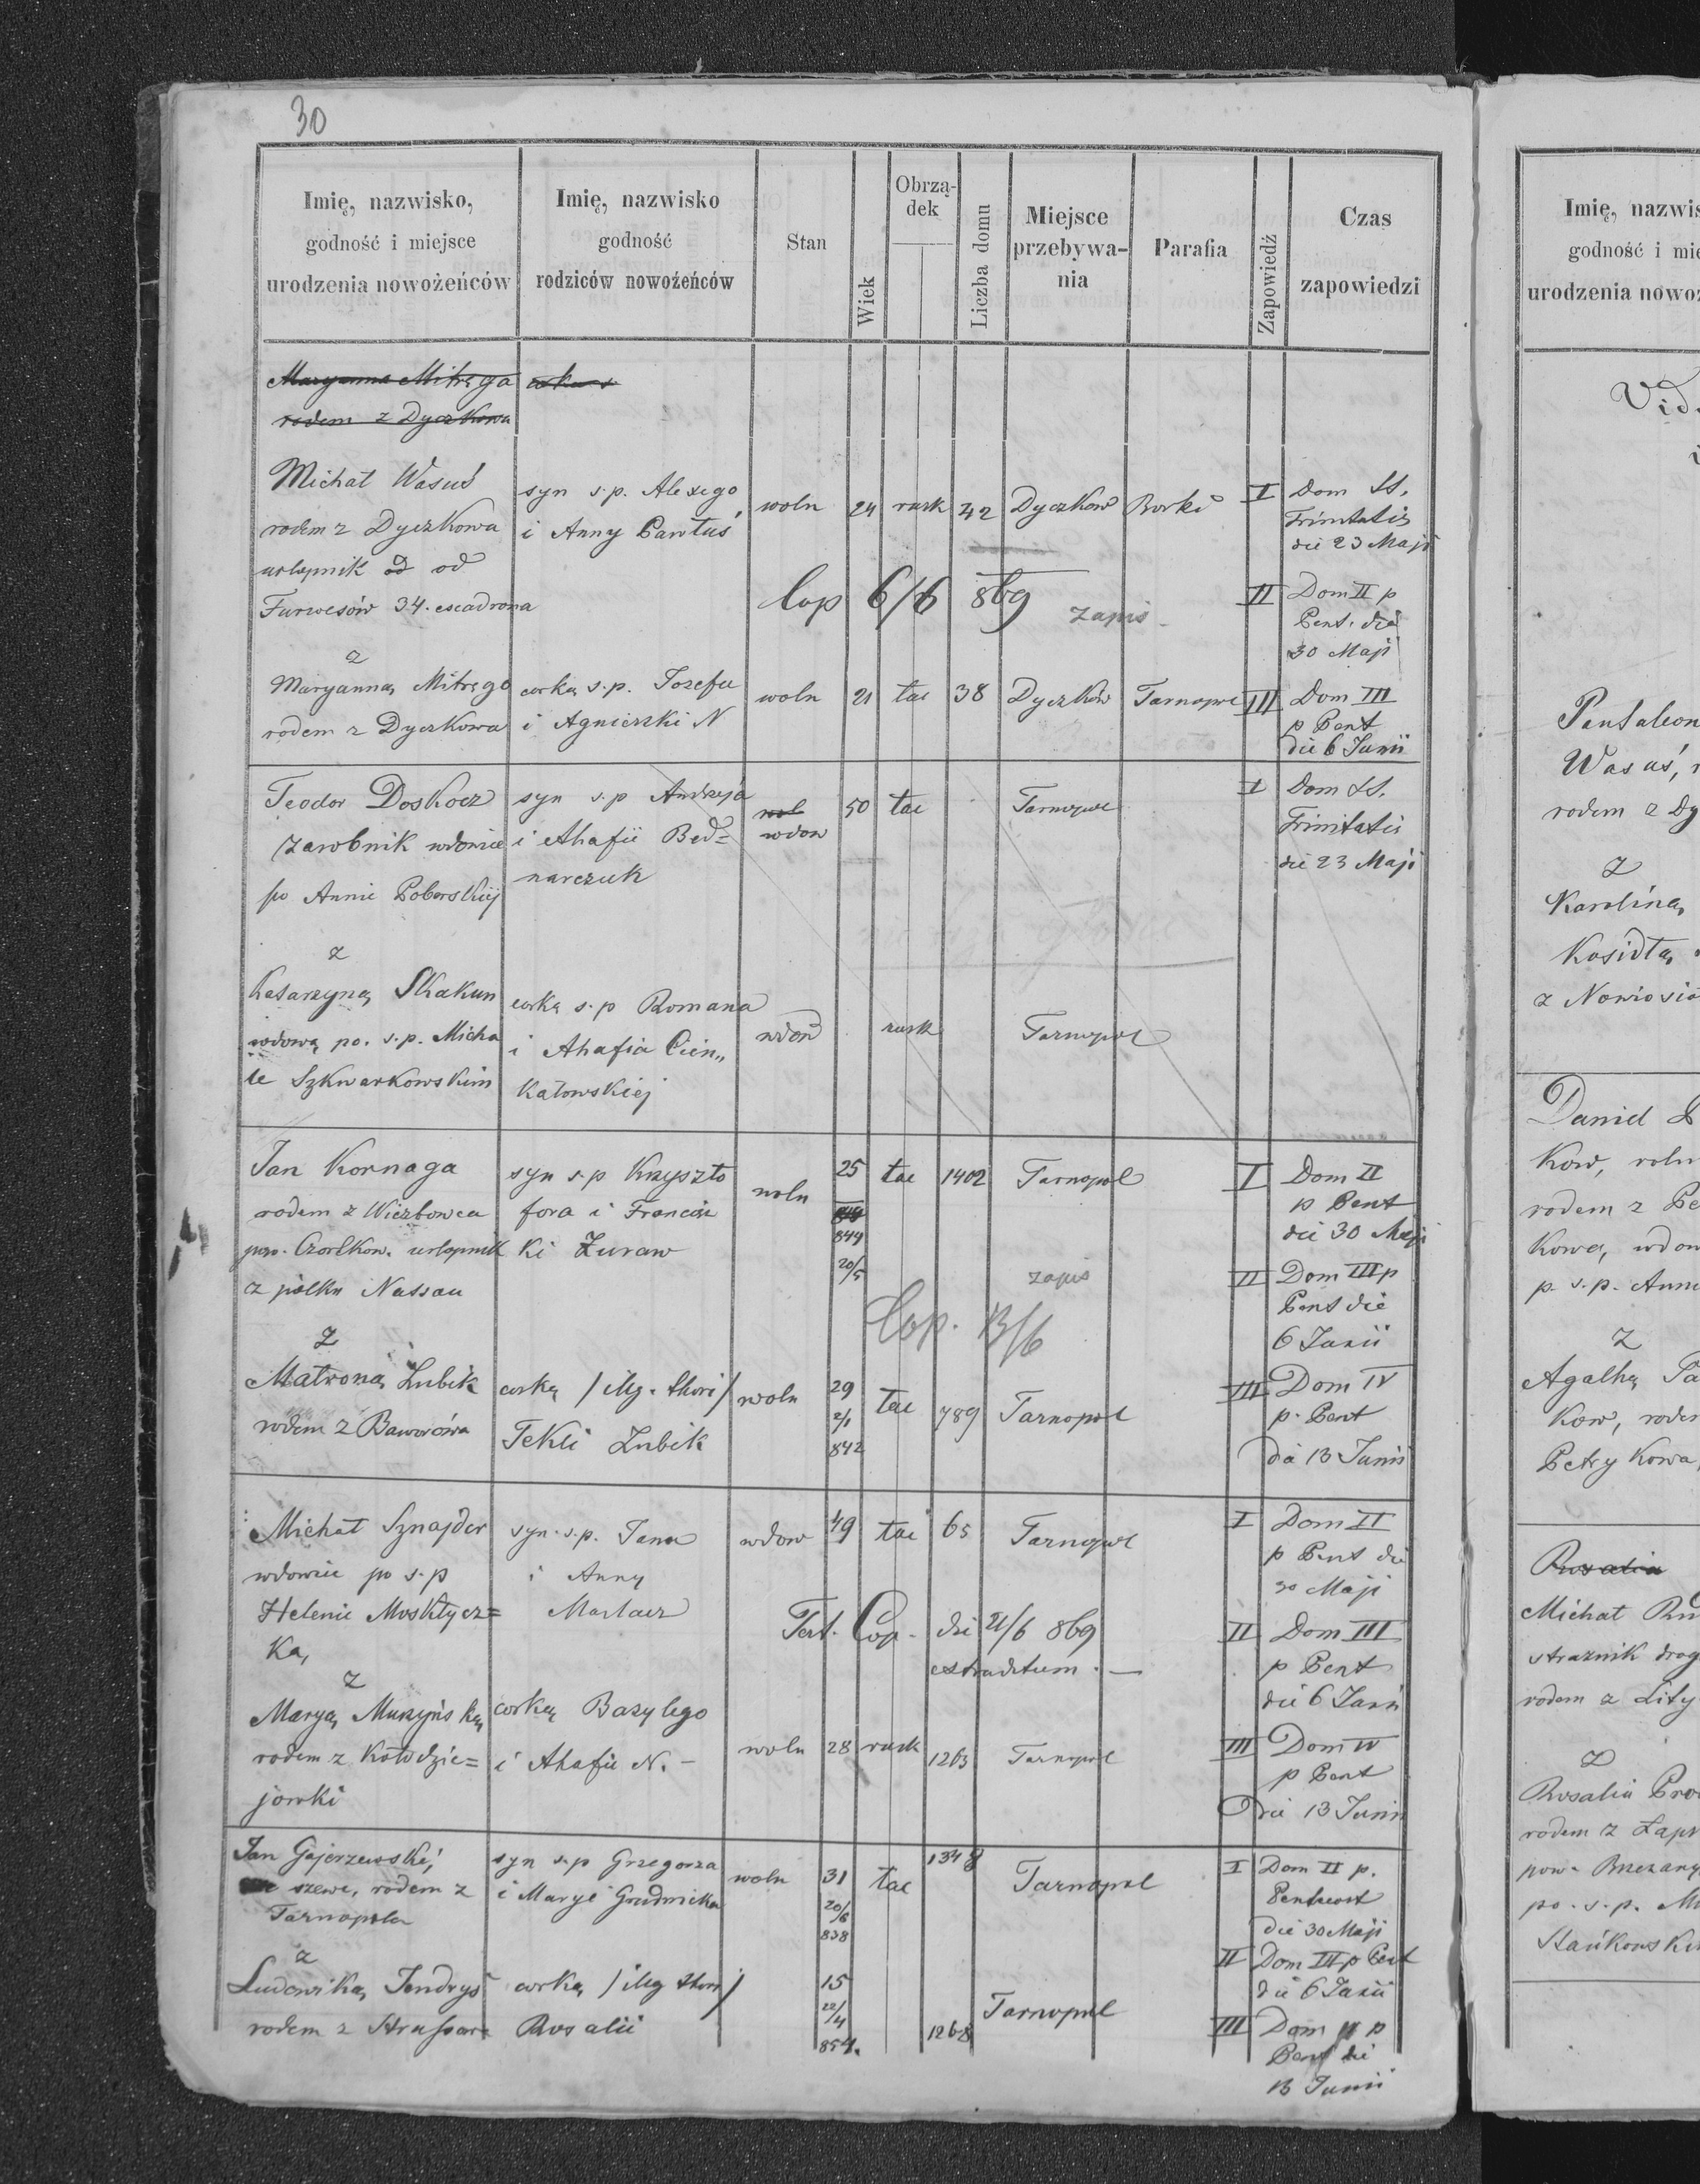 30
Imię, nazwisko,
godność i miejsce
urodzenia nowożeńców
Imię, nazwisko
godność
rodziców nowożeńców
Stan
Wiek
Obrzą-
dek
Liczba domu
Miejsce
przebywa-
nia
Parafia
Zapowiedź
Czas
zapowiedzi
Maryanna Mitręga
rodem z Dyczkowa
Michał Wasuś
rodem z Dyczkowa
urlopnik od od
Furwesów 34. escadrona
syn s.p. Alexego
i Anny Pawłuś
woln 24 rusk 42 Dyczków Borki
I Dom SS.
Trinitatis
die 23 Maji
Cop 6/6 869 zapis
II Dom II p
Pent. die
30 Maji
z
Maryanną Mitręgo
rodem z Dyczkowa
corką s.p. Jozefa
i Agnieszki N
woln 21 lac 38 Dyczków Tarnopol
III Dom III
p Pent
die 6 Junii
Teodor Doskocz
zarobnik wdowiec
po Annie Poborskiej
syn s.p Andreja
i Ahafii Bed=
narczuk
wol
wdow
50 lac Tarnopol
I Dom SS.
Trinitatis
die 23 Maji
z
Katarzyną Skakun
wdową po. s.p. Micha
le Szkwarkowskim
corką s.p Romana
i Ahafia Cien„
kałowskiej
wdow rusk Tarnopol
Jan Kornaga
rodem z Wierzbowca
pow. Czortkow. urlopnik
z połku Nassau
syn s.p Krzyszto
fora i Francisz
ki Żuraw
woln
25
844
20/5
lac 1402 Tarnopol
I Dom II
p Pent
die 30 Maji
zapis
II Dom III p
Pent die
6 Junii
Cop. 13/6
z
Matroną Zubik
rodem z Baworowa
corką / illg. thori /
Tekli Zubik
woln
29
2/1
842
lac 789 Tarnopol
III Dom IV
p. Pent
die 13 Junii
Michał Sznajder
wdowiec po s.p
Helenie Moskłycz=
ka,
syn s.p. Jana
i Anny
wdow 49 lac 65 Tarnopol
I Dom II
p Pent die
30 Maji
Test. Cop. die 21/6 869
extraditum. —
II Dom III
p Pent
die 6 Junii
z
Maryą Muzyńską
rodem z Kołodzie=
jowki
corką Bazylego
i Ahafii N. –
woln 28 rusk 1263 Tarnopol
III Dom IV
p Pent
die 13 Junii
Jan Gajerzewski,
szewc, rodem z
Tarnopola
syn s.p Grzegorza
i Maryi Grudnicka
woln
31
20/6
838
lac 1348 Tarnopol
I Dom II p.
Pentecost
die 30 Maji
II Dom III p Pent
die 6 Junii
z
Ludowiką Jendryś
rodem z
corką / illg thori /
Rosalii
15
22/4
854.
1268 Tarnopol
III Dom IV p
Pent die
13 Junii
Imię, nazwis
godność i mie
urodzenia nowoż
Vid.
Pantaleon
Wasuś, r
rodem z Dy
z
Karoliną
Kosidłą
z Nowosió
Daniel
kow, roln
rodem z Pe
kowa, wdow
p. s.p. Anni
z
Agafką Pa
kow, rodem
Petrykowa,
Rosalia
Michał Ru
strażnik drog
rodem z
z
Rosalia Pro
rodem z Zapu
pow. Brzeżany
po. s.p. Mi
Stańkowski